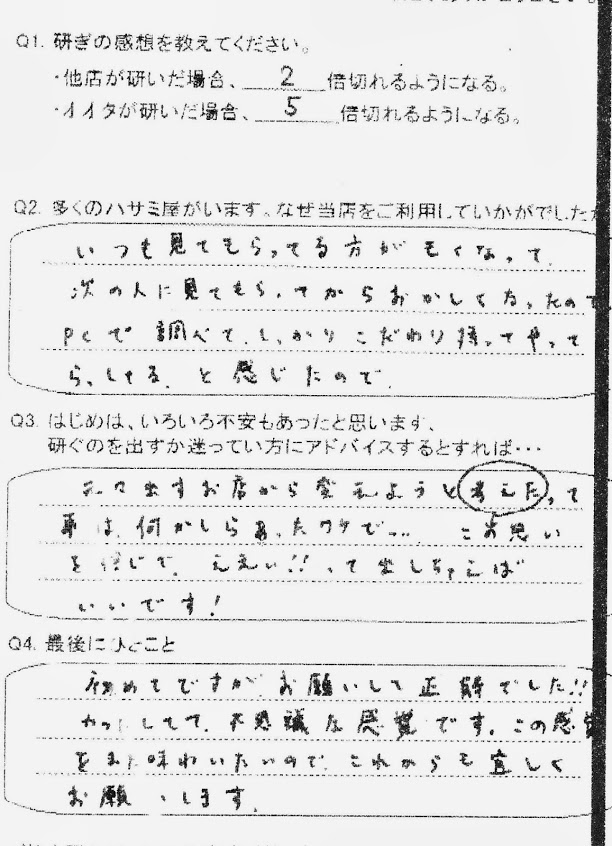 Q1. 研ぎの感想を教えてください。
・他店が研いだ場合、 2 倍切れるようになる。
・オイタが研いだ場合、 5 倍切れるようになる。
Q2. 多くのハサミ屋がいます。なぜ当店をご利用していかがでしたか
いつも見てもらってる方が なって
次の人に見てもらってからおかしくなったので
PCで調べて、しっかりこだわり持ってやって
らっしゃる、と感じたので。
Q3. はじめは、いろいろ不安もあったと思います、
研ぐのを出すか迷ってい方にアドバイスするとすれば…
お店から変えようと考えたって
事は、何かしらあったワケで… この思い
を信じて、ええい!!って出しちゃえば
いいです!
Q4. 最後にひとこと
初めてですが、お願いして正解でした!!
してて、不思議な感覚です。この感覚
をまた味わいたいので、これからも宜しく
お願いします。